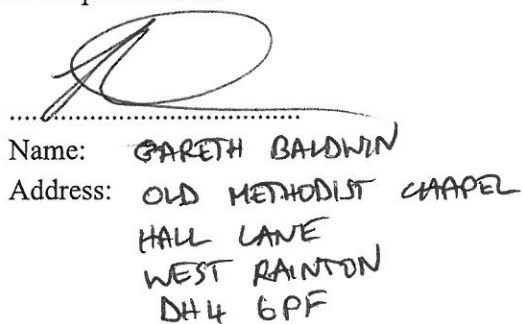 Name: GARETH BALDWIN
Address: OLD METHODIST CHAPEL
HALL LANE
WEST RAINTON
DH4 6PF